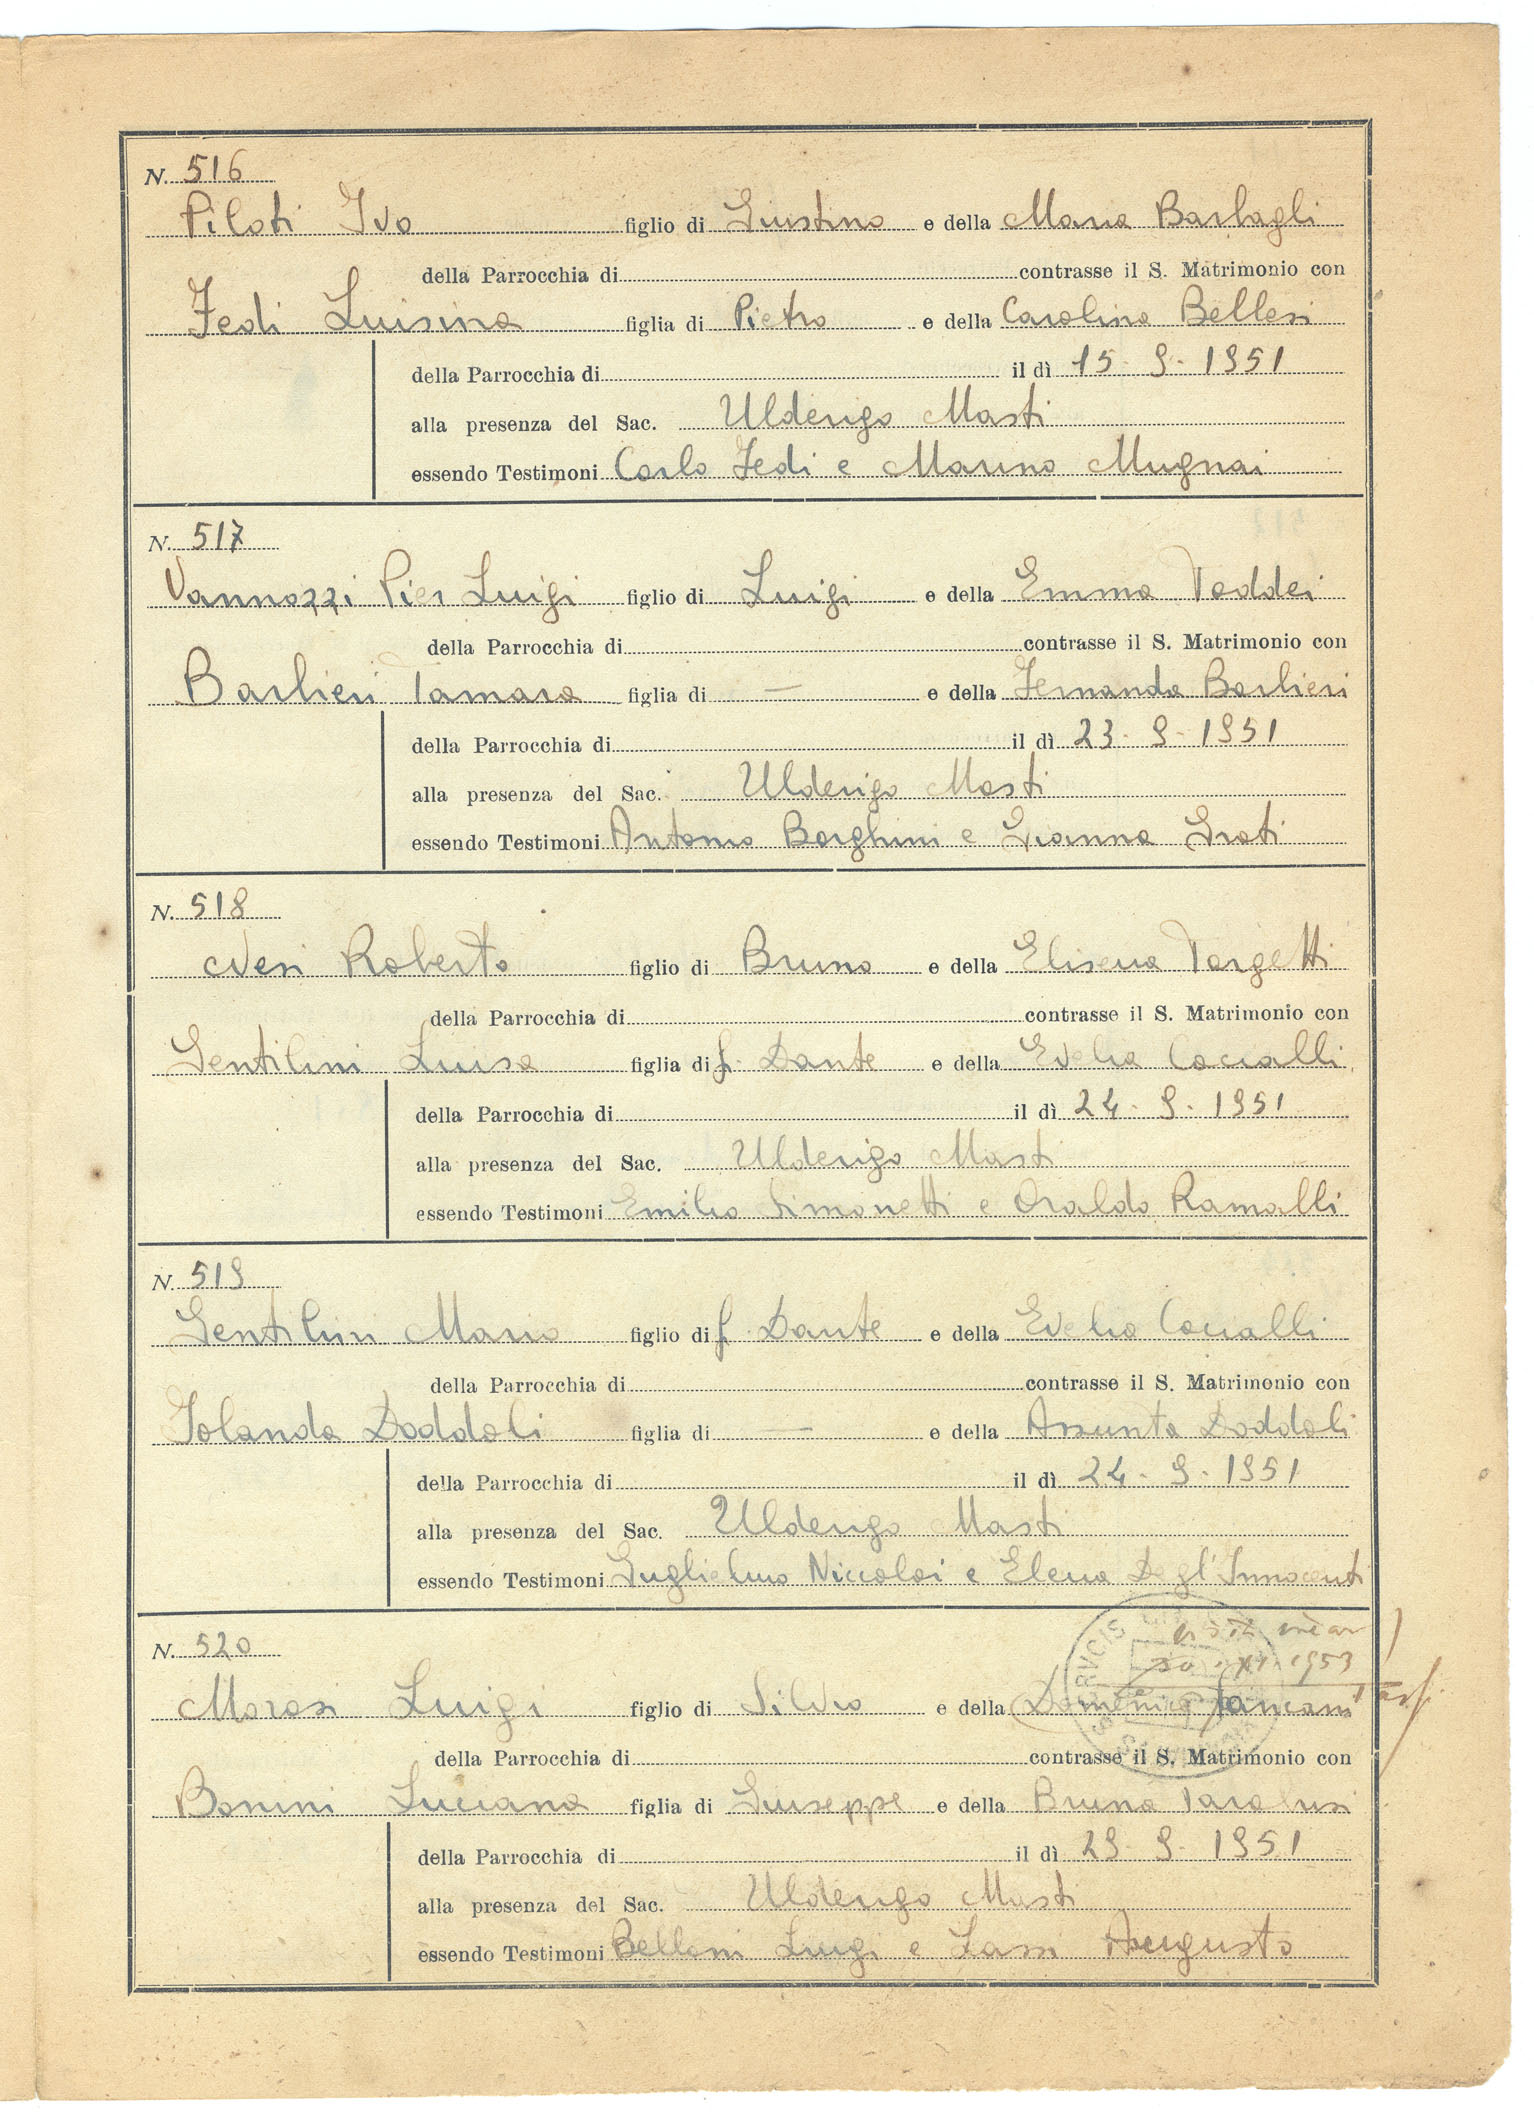 N. 516
Piloti Ivo figlio di Giustino e della Maria Barbagli
della Parrocchia di contrasse il S. Matrimonio con
Fedi Luisina figlia di Pietro e della Carolina Bellesi
della Parrocchia di il dì 15-9-1951
alla presenza del Sac. Ulderigo Masti
essendo Testimoni Carlo Fedi e Marino Mugnai
N. 517
Vannozzi Pier Luigi figlio di Luigi e della Emma Taddei
della Parrocchia di contrasse il S. Matrimonio con
Barbieri Tamara figlia di — e della Fernanda Barbieri
della Parrocchia di il dì 23-9-1951
alla presenza del Sac. Ulderigo Masti
essendo Testimoni Antonio Borghini e Gianna Grati
N. 518
Neri Roberto figlio di Bruno e della Elisena Targetti
della Parrocchia di contrasse il S. Matrimonio con
Gentilini Luisa figlia di f. Dante e della Evelia Cocialli
della Parrocchia di il dì 24-9-1951
alla presenza del Sac. Ulderigo Masti
essendo Testimoni Emilio Simonetti e Oraldo Ramalli
N. 519
Gentilini Mario figlio di f. Dante e della Evelia Cocialli
della Parrocchia di contrasse il S. Matrimonio con
Iolanda Daddoli figlia di — e della Assunta Daddoli
della Parrocchia di il dì 24-9-1951
alla presenza del Sac. Ulderigo Masti
essendo Testimoni Guglielmo Niccolai e Elena Degl'Innocenti
N. 520
XI 1953
Marasi Luigi figlio di Silvio e della Domenica
della Parrocchia di contrasse il S. Matrimonio con
Bonini Luciana figlia di Giuseppe e della Bruna
della Parrocchia di il dì 29-9-1951
alla presenza del Sac. Ulderigo Masti
essendo Testimoni Belloni Luigi e Lassi Augusto